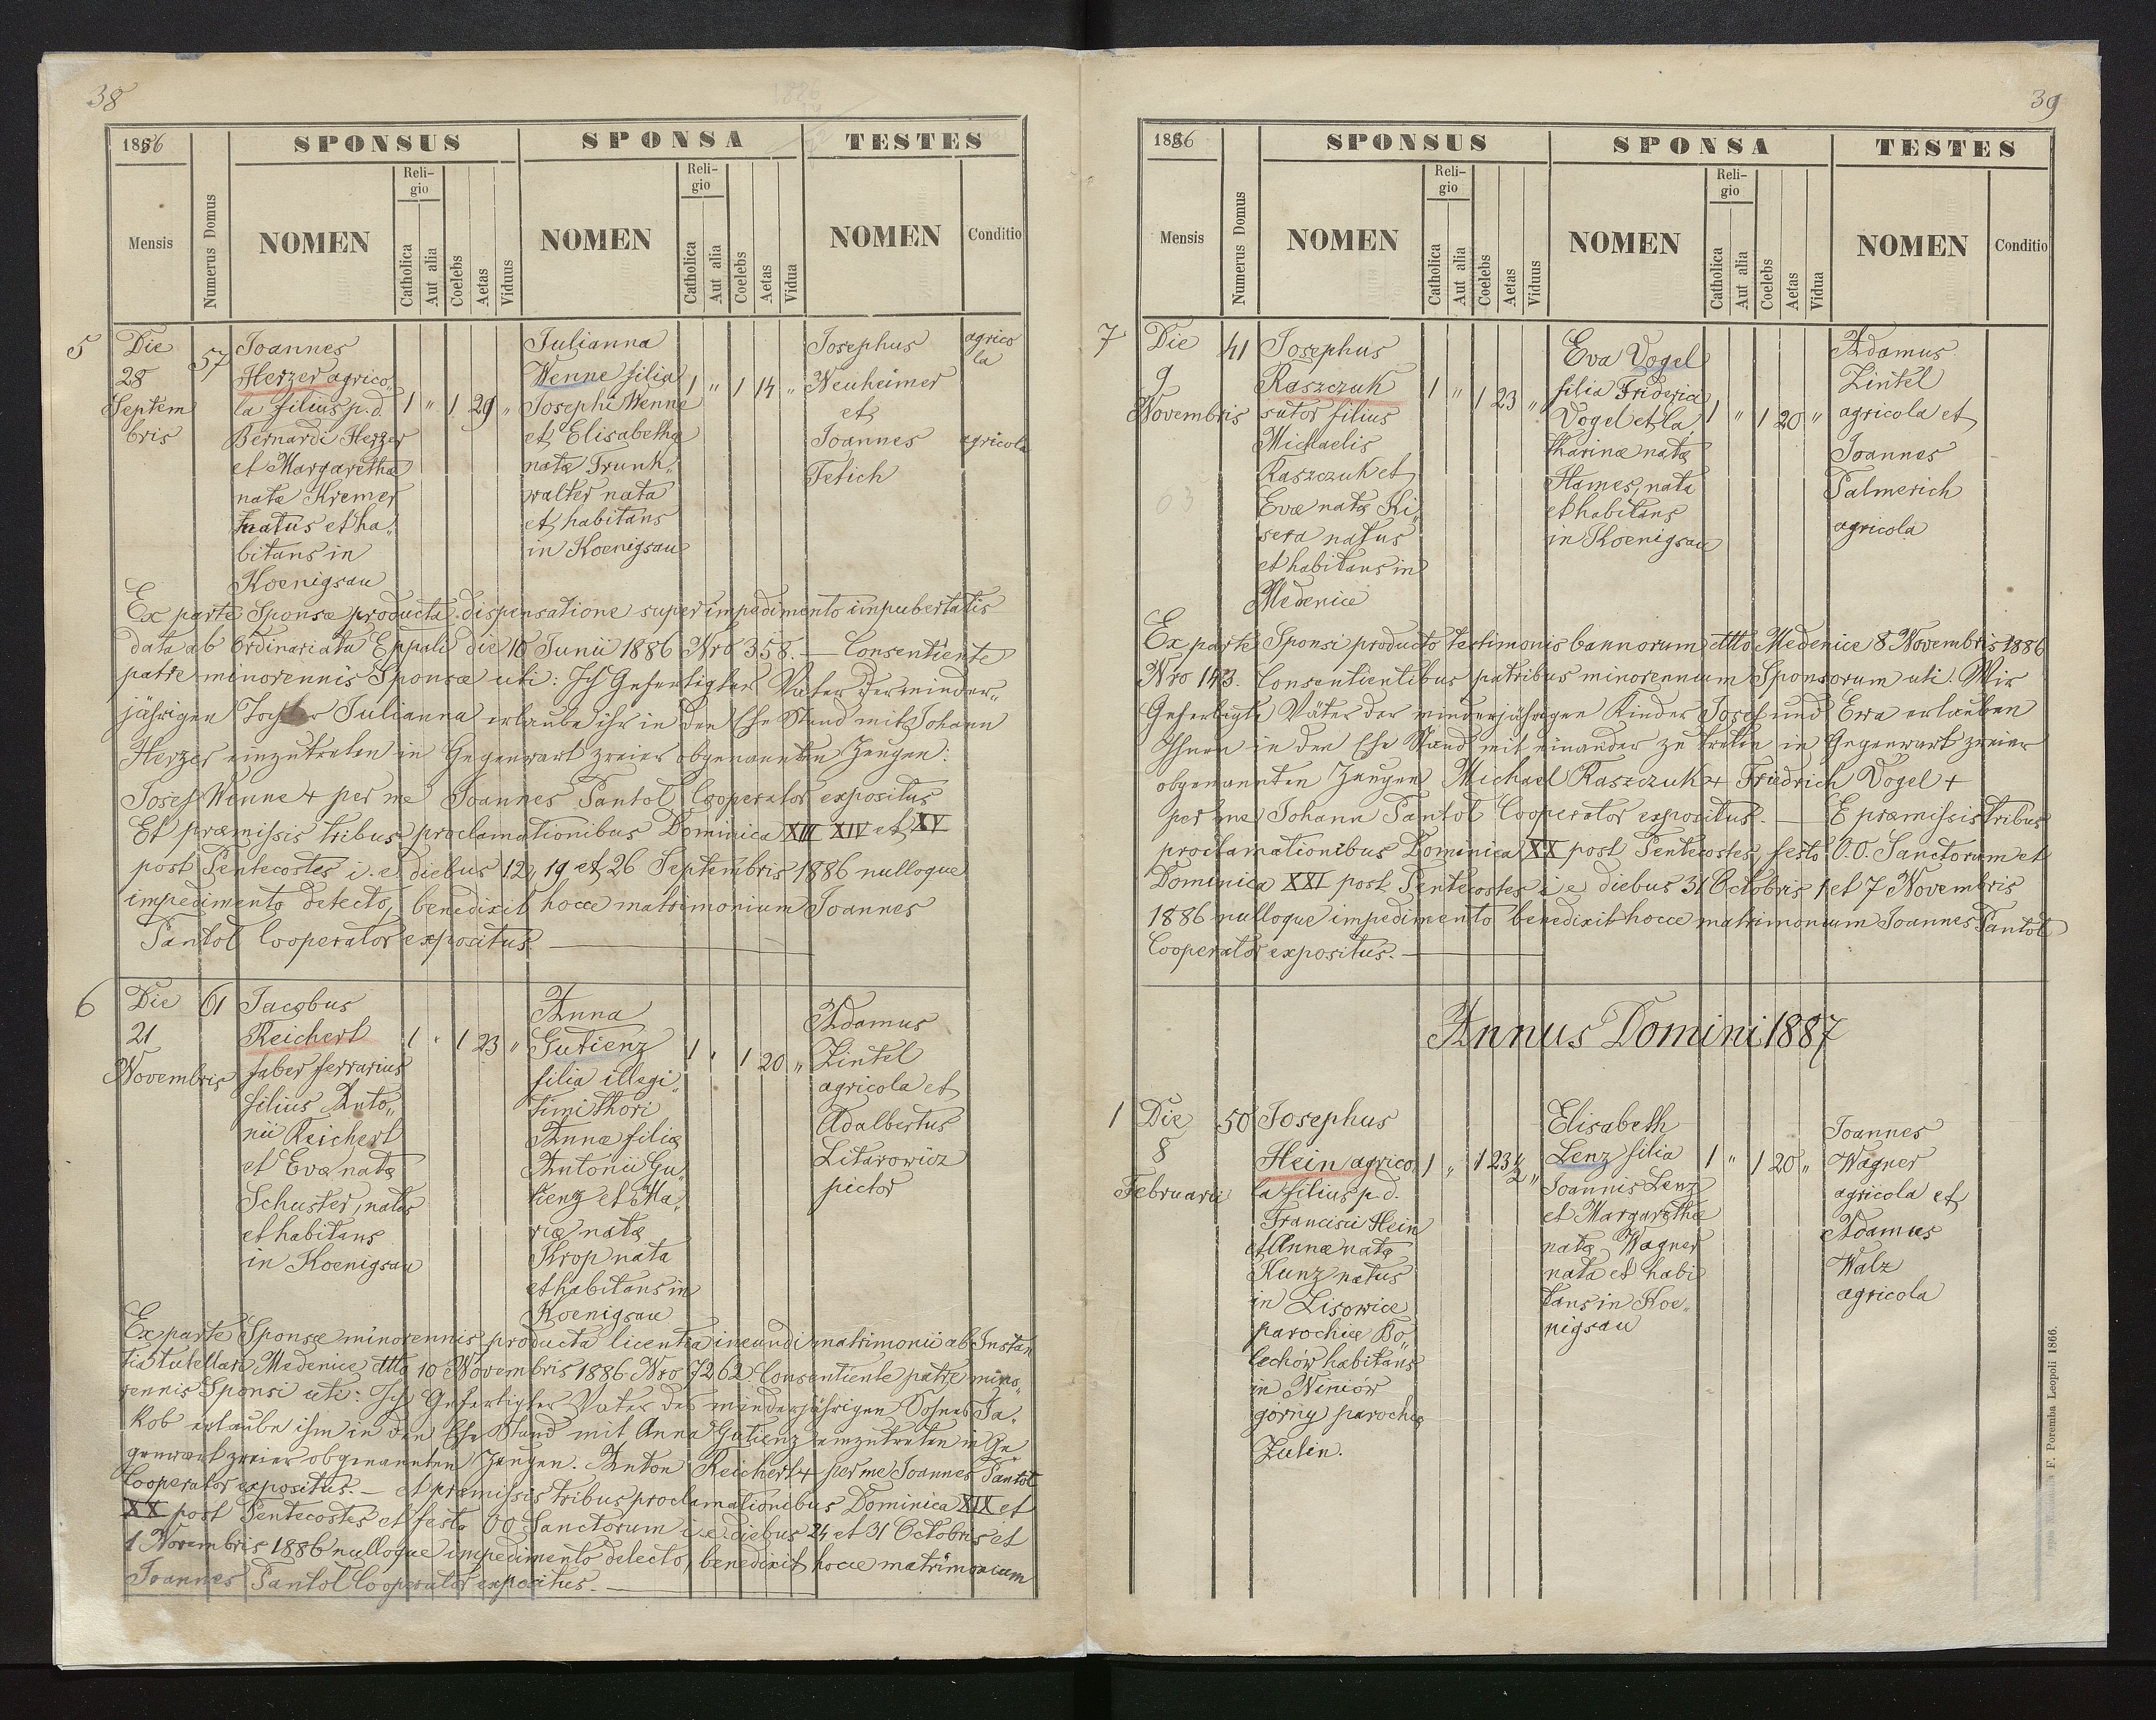 38
1886
SPONSUS
SPONSA
TESTES
Mensis
Numerus Domus
NOMEN
Reli-
gio
Catholica
Aut alia
Coelebs
Aetas
Viduus
NOMEN
Reli-
gio
Catholica
Aut alia
Coelebs
Aetas
Vidua
NOMEN
Conditio
5
Die
28
Septem
bris
57
Joannes
Herzer agrico„
la filius p. d.
Bernardi Herzer
et Margaretha
nata Kremer
natus et ha„
bitans in
Koenigsau
1 „ 1 29 „
Julianna
Wenne filia
Josephi Wenne
et Elisabethæ
natæ Trunk„
walter nata
et habitans
in Koenigsau
1 „ 1 14 „
Josephus
Neuheimer
et
Joannes
Fetich
agrico
la
agricola
Ex parte Sponsæ producta dispensatione super impedimento impubertatis
data ab Ordinariatu Eppali die 16 Junii 1886 Nro 358. — Consentiente
patre minorennis Sponsæ uti: Ich Gefertigter Vater der minder„
jährigen Tochter Julianna erlaube ihr in den Ehe Stand mit Johann
Herzer einzutreten in Gegenwart zweier obgenannten Zeugen:
Josef Wenne + per me Joannes Pantol Cooperator expositus
Et præmissis tribus proclamationibus Dominica XIII XIV et XV
post Pentecostes i. e. diebus 12, 19 et 26 Septembris 1886 nulloque
impedimento detecto, benedixit hocce matrimonium Joannes
Pantol Cooperator expositus
6
Die
21
Novembris
61
Jacobus
Reichert
faber ferrarius
filius Anto„
nii Reichert
et Evæ natæ
Schuster, natus
et habitans
in Koenigsau
1 „ 1 23 „
Anna
Gutienz
filia illegi„
timi thori
Annæ filiæ
Antonii Gu„
tienz et Ma„
riæ natæ
Krop nata
et habitans in
Koenigsau
1 „ 1 20 „
Adamus
Zintel
agricola et
Adalbertus
Litarowicz
pictor
Ex parte Sponsæ minorennis producta licentia ineundi matrimonii ab Instan
tia tutellari Medenice dtto 10 Novembris 1886 Nro 7262. Consentiente patre mino„
rennis Sponsi uti: Ich Gefertigter Vater des minderjährigen Sohnes Ja„
kob erlaube ihm in den Ehe Stand mit Anna Gutienz einzutreten in Ge„
genwart zweier obgenannten Zeugen. Anton Reichert + per me Joannes Pantol
Cooperator expositus. — et præmissis tribus proclamationibus Dominica XIX et
XX post Pentecostes et festo OO Sanctorum i. e. diebus 24 et 31 Octobris et
1 Novembris 1886 nulloque impedimento detecto, benedixit hocce matrimonium
Joannes Pantol Cooperator expositus.
39
1886
SPONSUS
SPONSA
TESTES
Mensis
Numerus Domus
NOMEN
Reli-
gio
Catholica
Aut alia
Coelebs
Aetas
Viduus
NOMEN
Reli-
gio
Catholica
Aut alia
Coelebs
Aetas
Vidua
NOMEN
Conditio
7
Die
9
Novembris
41
Josephus
Raszczuk
sutor filius
Michaelis
Raszczuk et
Evæ natæ Ki„
sera natus
et habitans in
Medenice
1 „ 1 23 „
Eva Vogel
filia Friderici
Vogel et Ca„
tharinæ natæ
Hames, nata
et habitans
in Koenigsau
1 „ 1 20 „
Adamus
Zintel
agricola et
Joannes
Palmerich
agricola
Ex parte Sponsi producto testimonio bannorum dtto Medenice 8 Novembris 1886
Nro 143. Consentientibus patribus minorennium Sponsorum uti. Wir
Gefertigte Väter der minderjährigen Kinder Josef und Ewa erlauben
Ihnen in den Ehe Stand mit einander zu treten in Gegenwart zweier
obgenannten Zeugen Michael Raszczuk + Friedrich Vogel +
per me Johann Pantol Cooperator expositus. — E præmissis tribus
proclamationibus Dominica XX post Pentecostes, festo O.O. Sanctorum et
Dominica XXI post Pentecostes i e diebus 31 Octobris 1 et 7 Novembris
1886 nulloque impedimento benedixit hocce matrimonium Joannes Pantol
Cooperator expositus.
Annus Domini 1887
1
Die
8
Februarii
50
Josephus
Hein agrico„
la filius p. d.
Francisci Hein
et Annæ natæ
Kunz natus
in Lisowice
parochiæ Bo„
lechów habitans
in Niniów
górny parochiæ
Zulin.
1 „ 1 23½ „
Elisabeth
Lenz filia
Joannis Lenz
et Margarethæ
natæ Wagner
nata et habi
tans in Koe„
nigsau
1 „ 1 20 „
Joannes
Wagner
agricola et
Adamus
Walz
agricola
F. Poremba Leopoli 1866.